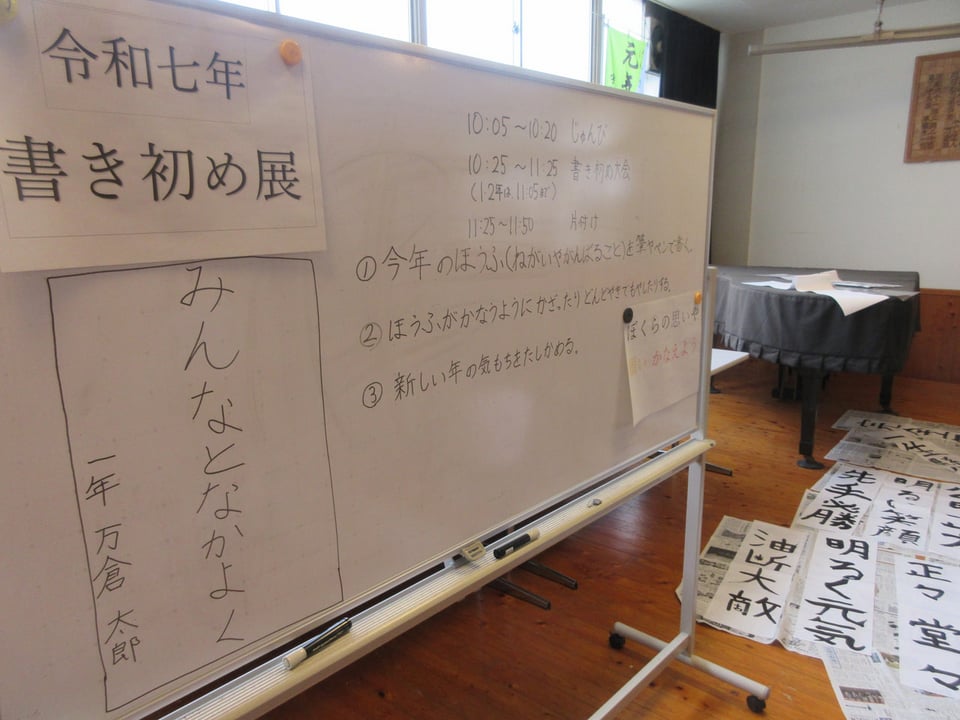 令和七年
書き初め展
みんなとなかよく
一年 万倉 太郎
10:05～10:20 じゅんび
10:25～11:25 書き初め大会
(1.2年は、11:05まで)
11:25～11:50 片付け
①今年のほうふ(ねがいやがんばること)を筆やペンで書く。
②ほうふがかなうようにかざったりどんどやきでもやしたりする。
③新しい年の気もちをたしかめる。
ぼくらの思いや
かなえよう
元
先手必勝
明るい笑顔
油断大敵
明るく元気
正々堂々